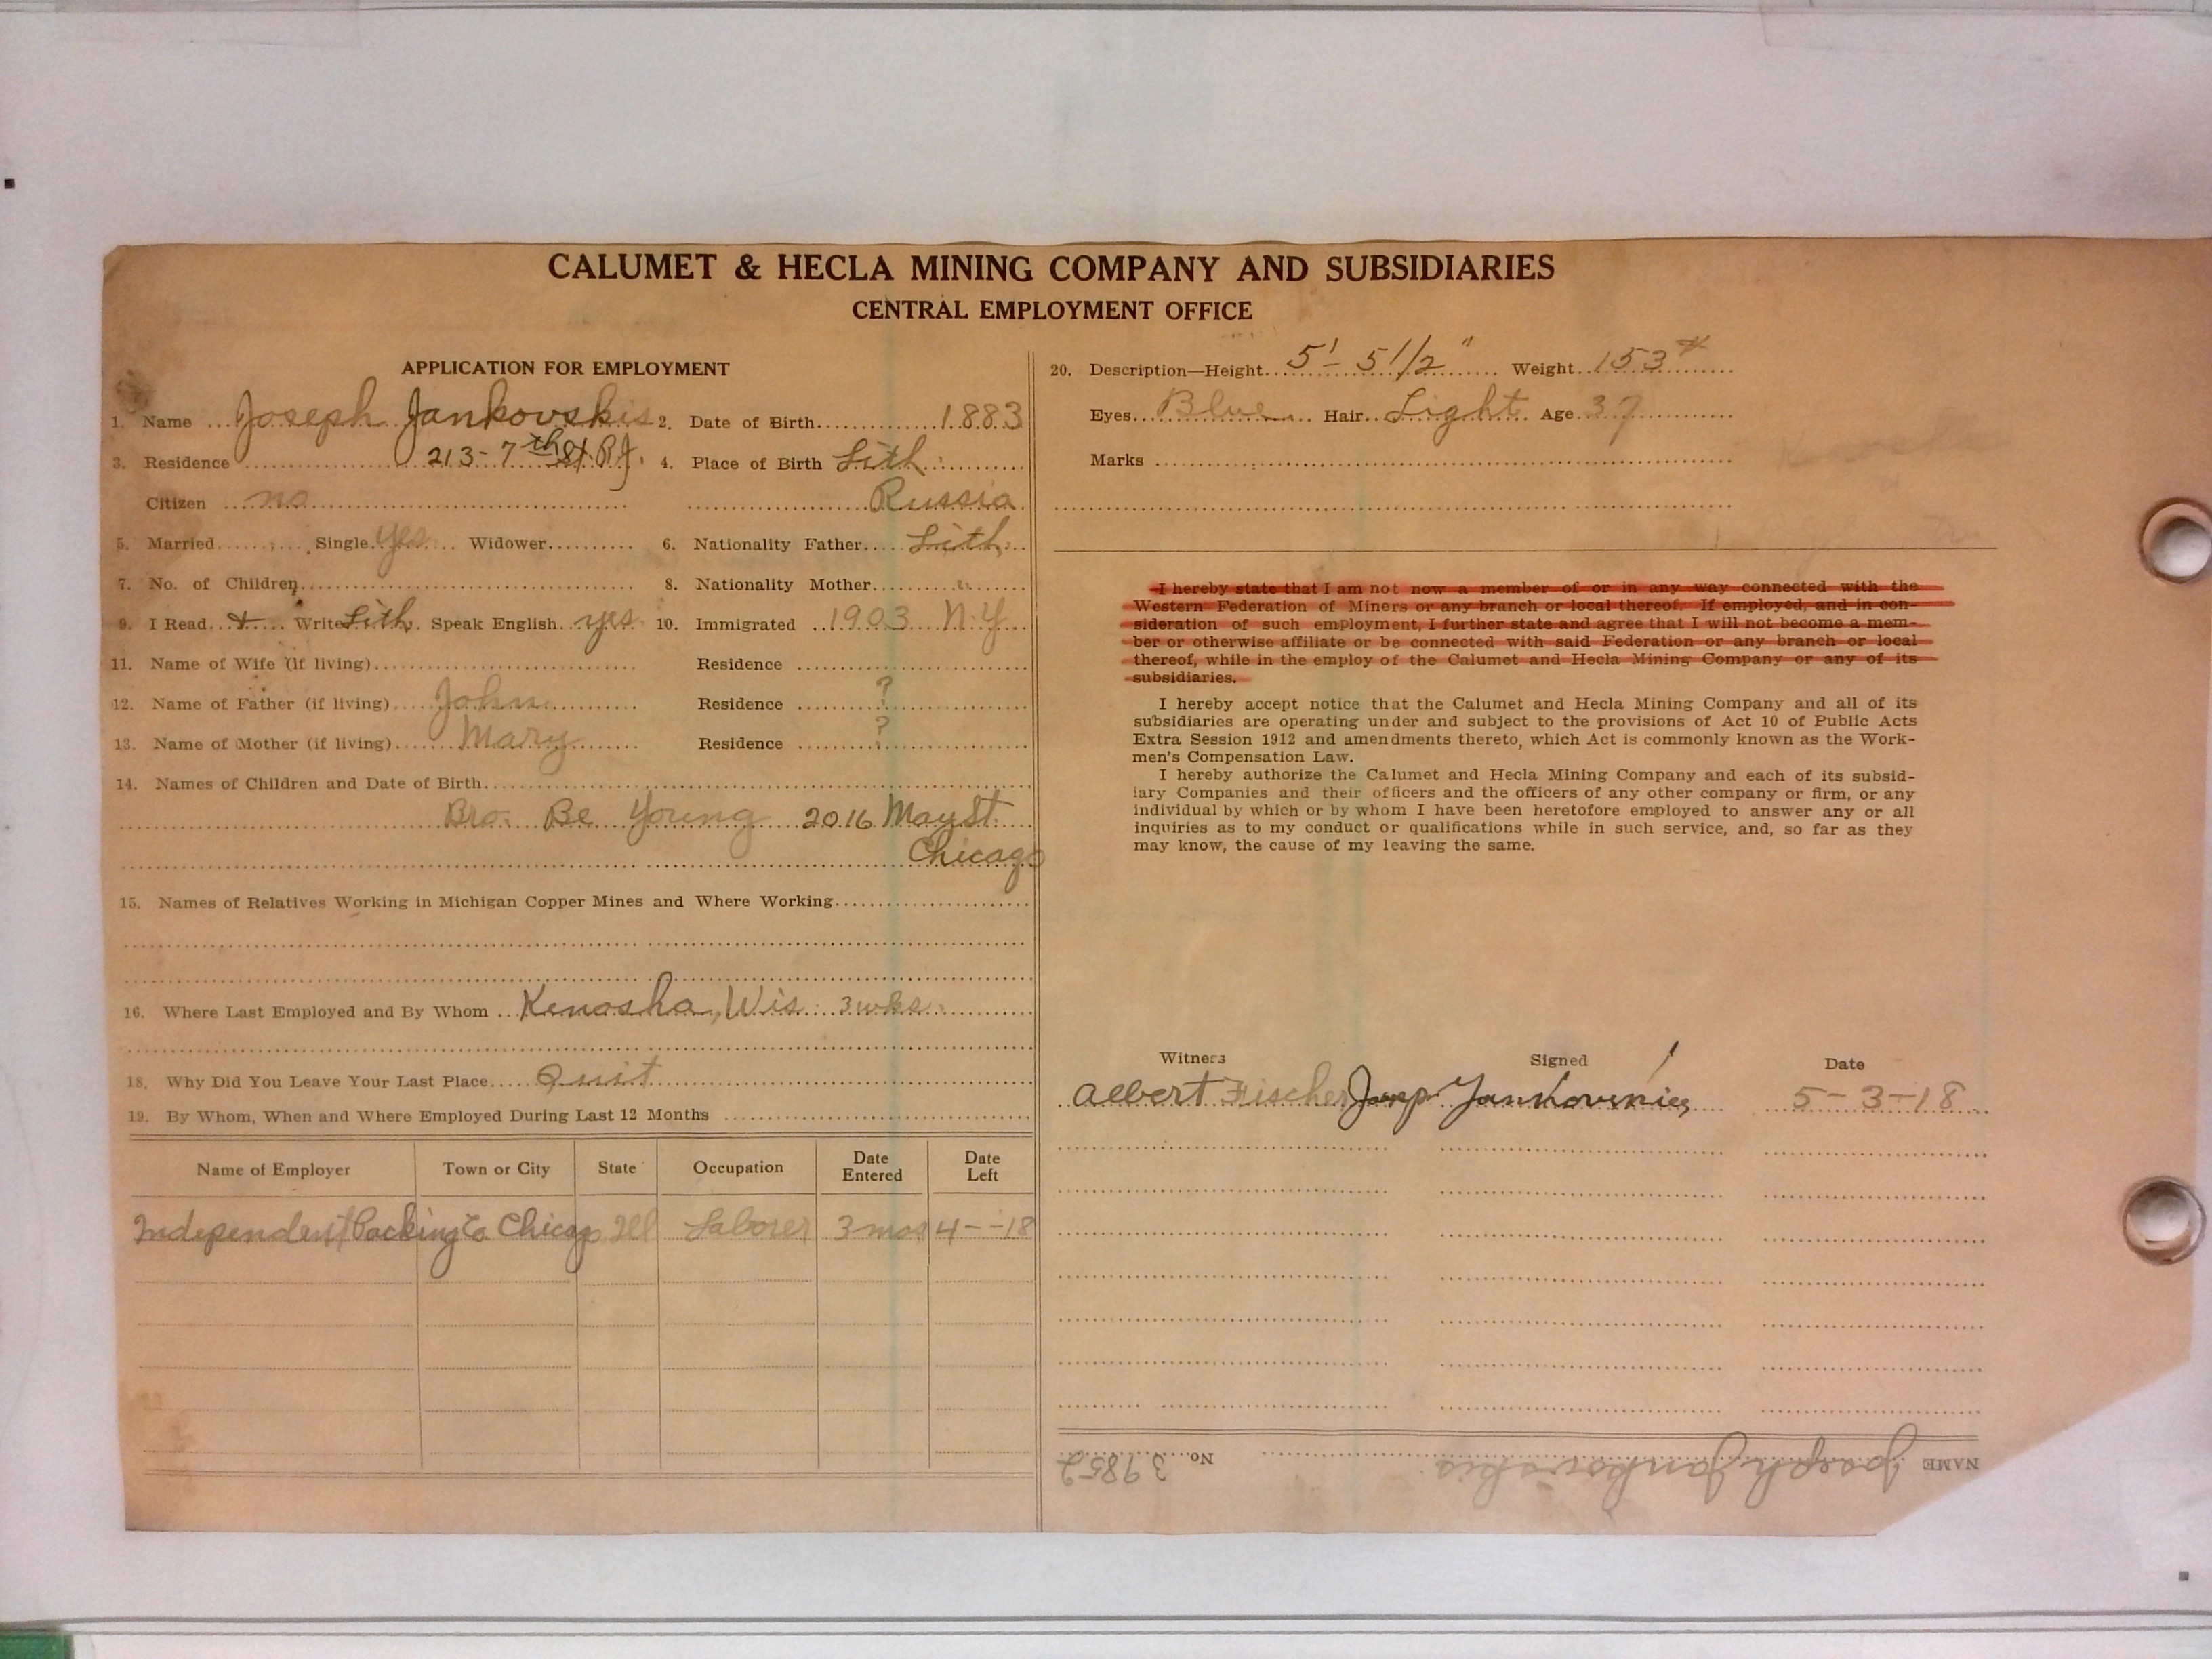 CALUMET & HECLA MINING COMPANY AND SUBSIDIARIES
CENTRAL EMPLOYMENT OFFICE
APPLICATION FOR EMPLOYMENT
1. Name Joseph Jankovskis 2. Date of Birth 1883
3. Residence 213-7th St. R.J. 4. Place of Birth Lith.
Citizen no Russia
5. Married Single yes Widower 6. Nationality Father Lith.
7. No. of Children 8. Nationality Mother "
9. I Read & Write Lith. Speak English yes 10. Immigrated 1903 N.Y
11. Name of Wife (if living) Residence
12. Name of Father (if living) John Residence ?
13. Name of Mother (if living) Mary Residence ?
14. Names of Children and Date of Birth
Bro. Be Young 2016 May St.
Chicago
15. Names of Relatives Working in Michigan Copper Mines and Where Working
16. Where Last Employed and By Whom Kenosha, Wis. 3 wks.
18. Why Did You Leave Your Last Place Quit
19. By Whom, When and Where Employed During Last 12 Months
Name of Employer Town or City State Occupation Date Entered Date Left
Independent Packing Co Chicago Ill Laborer 3 mos 4--18
20. Description—Height 5'-5 1/2" Weight 153#
Eyes Blue Hair Light Age 37
Marks
I hereby state that I am not now a member of or in any way connected with the
Western Federation of Miners or any branch or local thereof. If employed, and in con-
sideration of such employment, I further state and agree that I will not become a mem-
ber or otherwise affiliate or be connected with said Federation or any branch or local
thereof, while in the employ of the Calumet and Hecla Mining Company or any of its
subsidiaries.
I hereby accept notice that the Calumet and Hecla Mining Company and all of its
subsidiaries are operating under and subject to the provisions of Act 10 of Public Acts
Extra Session 1912 and amendments thereto, which Act is commonly known as the Work-
men's Compensation Law.
I hereby authorize the Calumet and Hecla Mining Company and each of its subsid-
iary Companies and their officers and the officers of any other company or firm, or any
individual by which or by whom I have been heretofore employed to answer any or all
inquiries as to my conduct or qualifications while in such service, and, so far as they
may know, the cause of my leaving the same.
Witness Signed Date
Albert Fischer 5-3-18
NAME Joseph Jankovskis No. 39852